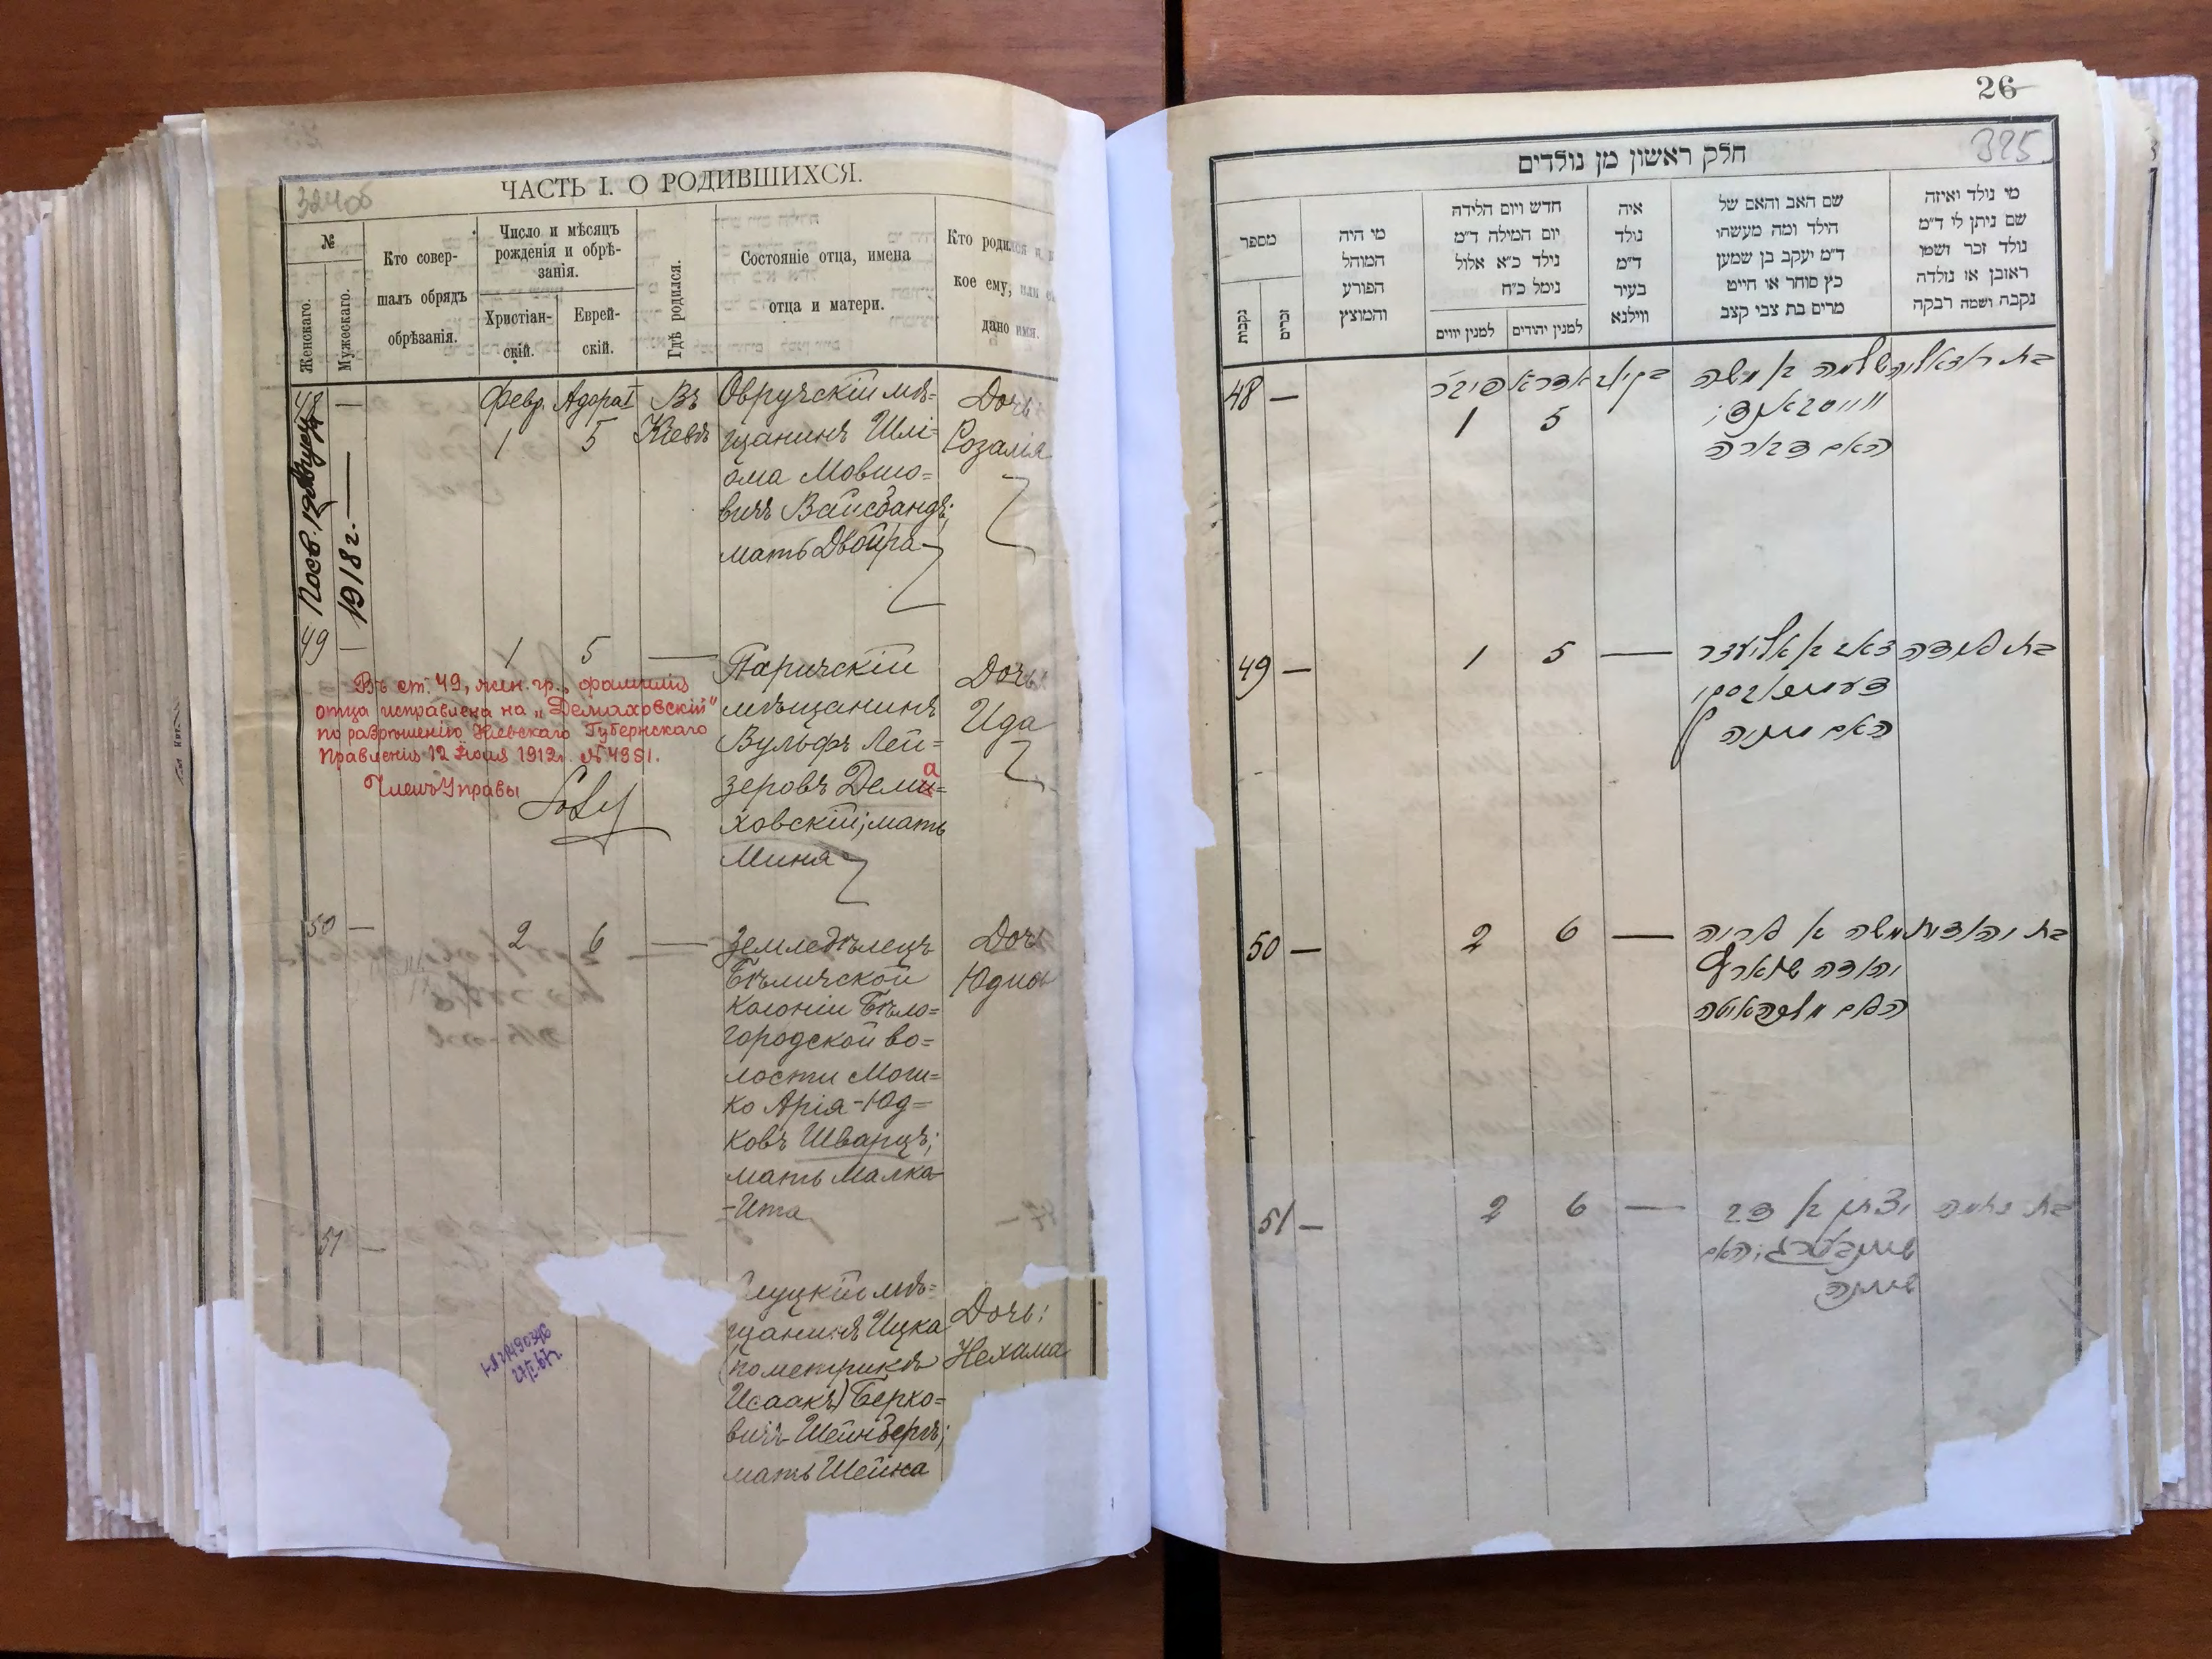 324об
ЧАСТЬ I. О РОДИВШИХСЯ.
№
Женскаго.
Мужескаго.
Кто совер-
шалъ обрядъ
обрѣзанія.
Число и мѣсяцъ
рожденія и обрѣ-
занія.
Христіан-
скій.
Еврей-
скій.
Гдѣ родился.
Состояніе отца, имена
отца и матери.
Кто родился и
кое ему, или
дано имя.
48 —
Февр. Адора I Въ
1 5 Кіевѣ
Овручскій мѣ=
щанинъ Шлі=
ома Мовшо=
вичъ Вайсбандъ;
мать Двойра
Дочь
Розалія
1918 г.
49 — 1 5 —
Паричскій
мѣщанинъ
Вульфъ Лей=
зеровъ Деми=
а
ховскій; мать
Миня
Дочь:
Ида
Въ ст. 49, жен. гр., фамилія
отца исправлена на „Демаховскій"
по разрѣшенію Кіевскаго Губернскаго
Правленія 12 Іюля 1912 г. №4951.
Членъ Управы
50 — 2 6 —
Земледѣлецъ
Бѣличской
колоніи Бѣло=
городской во=
лости Мош=
ко Арія-Юд=
ковъ Шварцъ;
мать Малка-
-Ита
Дочь
Юдисъ
51 —
луцкій мѣ=
щанинъ Ицка
(по метрикѣ
Исаакъ) Берко=
вичъ Шейнбергъ;
мать Шейна
Дочь:
Нехама
26
325
חלק ראשון מן נולדים
מי נולד ואיזה
שם ניתן לו ד״מ
נולד זכר ושמו
ראובן או נולדה
נקבה ושמה רבקה
שם האב והאם של
הילד ומה מעשהו
ד״מ יעקב בן שמעון
כץ סוחר או חייט
מרים בת צבי קצב
איה
נולד
ד״מ
בעיר
ווילנא
חדש ויום הלידה
יום המילה ד״מ
נילד כ״א אלול
נימל כ״ח
למנין יהודים
למנין יווים
מי היה
המוהל
הפורע
והמוצץ
מספר
זכרים
נקבות
48 —
1 5
שלמה בן משה
ווייסבאנד;
האם דבורה
49 — 1 5 —
זאב בן אליעזר
האם מינה
50 — 2 6 —
משה בן אריה
יהודה שווארץ
האם מלכה איטה
51 — 2 6 —
בת נחמה
יצחק בן דב
שיינבערג; האם
שיינה